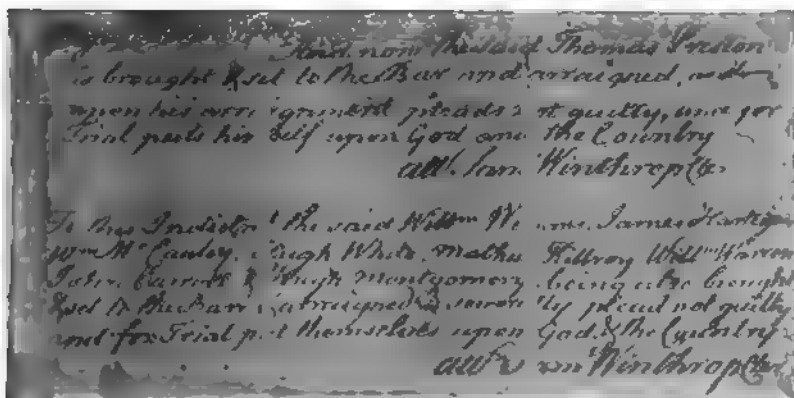 And now the said Thomas Preston
is brought & set to the Bar and arraigned, and
upon his arraignment pleads not guilty, and for
Trial puts himself upon God and the Country
attt. Sam Winthrop Cler
To this Indictmt the said Willm Wemms James Hartigan
Wm McCauley, Hugh White, Mathw Killroy Willm Warren
John Carroll & Hugh Montgomery being also brought
& set to the Bar & arraigned severally plead not guilty
and for Trial put themselves upon God & the Country
attt Sam Winthrop Cler